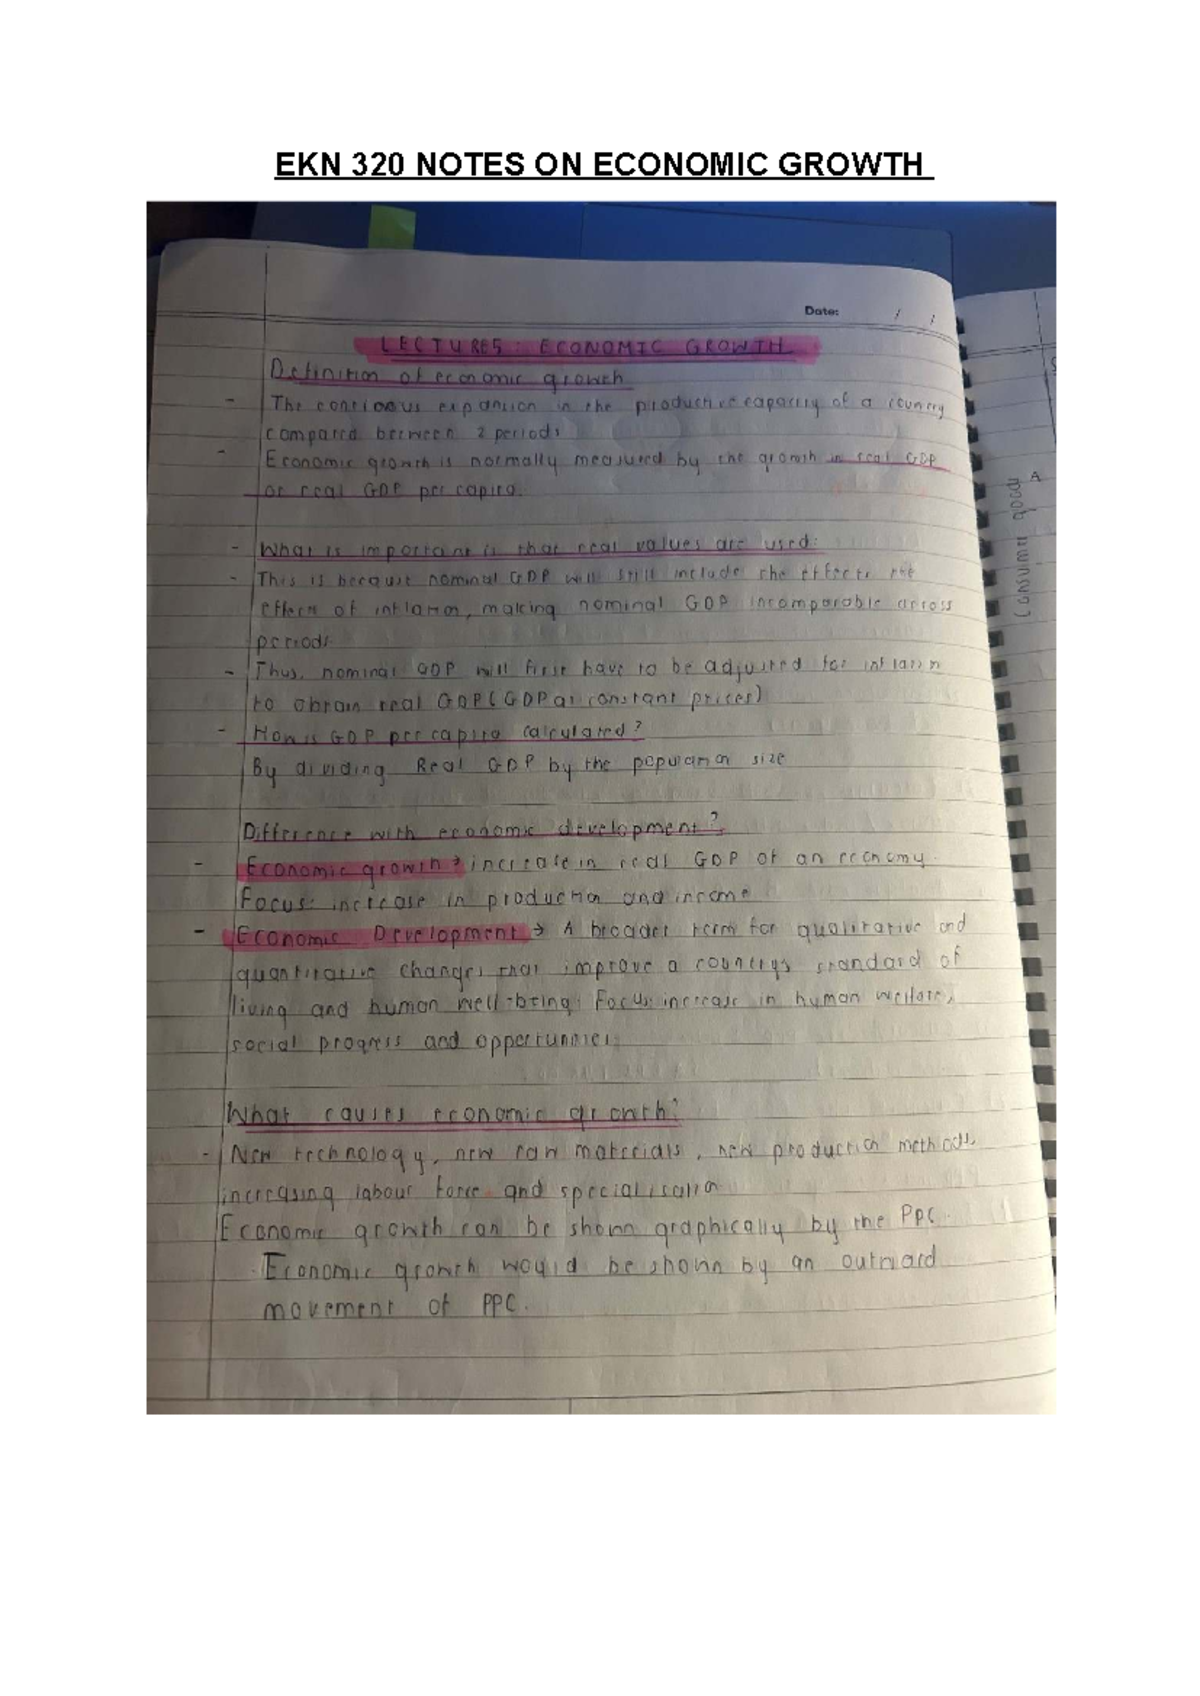 EKN 320 NOTES ON ECONOMIC GROWTH
Date: / /
LECTURE 5 : ECONOMIC GROWTH
Definition of economic growth
- The continous expansion in the productive capacity of a country
compared between 2 periods
- Economic growth is normally measured by the growth in real GDP
or real GDP per capita.
- What is important is that real values are used:
- This is because nominal GDP will still include the effects the
effects of inflation, making nominal GDP incomparable across
periods.
- Thus, nominal GDP will first have to be adjusted for inflation
to obtain real GDP (GDP at constant prices)
- How is GDP per capita calculated?
By dividing Real GDP by the population size
Difference with economic development?
- Economic growth → increase in real GDP of an economy.
Focus: increase in production and income
- Economic Development → A broader term for qualitative and
quantitative changes that improve a country's standard of
living and human well-being. Focus: increase in human welfare,
social progress and opportunities.
What causes economic growth?
- New technology, new raw materials, new production methods,
increasing labour force and specialisation.
Economic growth can be shown graphically by the PPC.
- Economic growth would be shown by an outward
movement of PPC.
A
Consumer goods